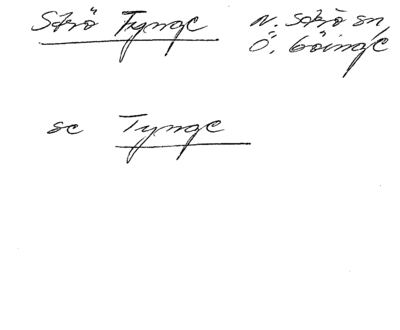 Strö Tynge N. Strö sn,
Ö. Göinge
se Tynge